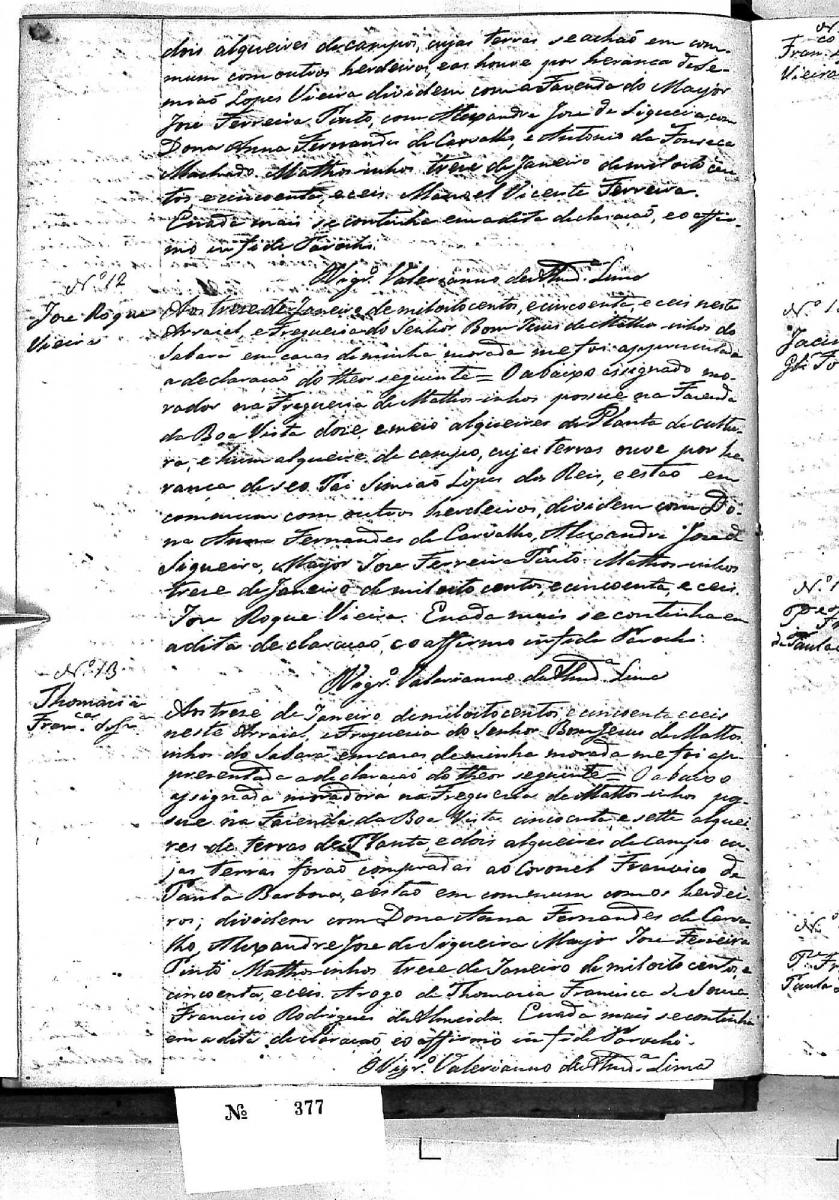 dois alqueires de campos, cujas terras se achaõ em com-
mum com outros herdeiros, e as houve por herança de Si-
miaõ Lopes Vieira dividem com a Fazenda do Mayor
Joze Ferreira Pinto, com Alexandre Joze de Siqueira, com
Dona Anna Fernandes de Carvalho, e Antonio da Fonseca
Machado. Mathosinhos treze de Janeiro de mil oito cen-
tos e cincoenta, e ceis. Manoel Vicente Ferreira.
E nada mais se continha em a dita declaraçaõ, e o affir-
mo in fide Parochi.
O Vigr.º Valerianno de Almd.ª Lima
Nº 12
Joze Roque
Vieira
Aos treze de Janeiro de mil oito centos, e cincoenta, e ceis neste
Arraial, e Freguezia do Senhor Bom Jezus de Mathosinhos do
Sabará em cazas de minha morada me foi appresentada
a declaraçaõ do theor seguinte = O abaixo assignado mo-
rador na Freguezia de Mathosinhos possue na Fazenda
da Boa Vista doze, e meio alqueires de Planta de cultu-
ra, e hum alqueire de campo, cujas terras ouve por he-
rança de seo Pai Simiaõ Lopes dos Reis, e estaõ em
comum com outros herdeiros, dividem com Do-
na Anna Fernandes de Carvalho, Alexandre Joze de
Siqueira, Mayor Joze Ferreira Pinto. Mathosinhos
treze de Janeiro de mil oito centos, e cincoenta, e ceis.
Joze Roque Vieira. E nada mais se continha em
a dita declaraçaõ, e o affirmo in fide Parochi.
O Vigr.º Valerianno de Almd.ª Lima
Nº 13
Thomazia
Fran.ca de Sz.a
Aos treze de Janeiro de mil oito centos, e cincoenta e ceis
neste Arraial, e Freguezia do Senhor Bom Jezus de Matto-
sinhos do Sabará em cazas de minha morada me foi ap-
prezentada a declaraçaõ do theor seguinte = O abaixo
assignada moradora na Freguezia de Mattosinhos pos-
sue na Fazenda da Boa Vista cincoenta, e sette alquei-
res de terras de Planta, e dois alqueires de Campo cu-
jas terras foraõ compradas ao Coronel Francisco de
Paula Barboza, e estaõ em comum com os herdei-
ros; dividem com Dona Anna Fernandes de Carva-
lho, Alexandre Joze de Siqueira Mayor Joze Ferreira
Pinto Mathosinhos treze de Janeiro de mil oito centos, e
cincoenta, e ceis. A rogo de Thomazia Francisca de Souza
Francisco Rodrigues de Almeida. E nada mais se continha
em a dita declaraçaõ e o affirmo in fide Parochi.
O Vigr.º Valerianno de Almd.ª Lima
Nº 377
Fran.
Vieira
Nº 1
Jacin
Nº 1
de Paula
Nº
P.e Fr
Paula